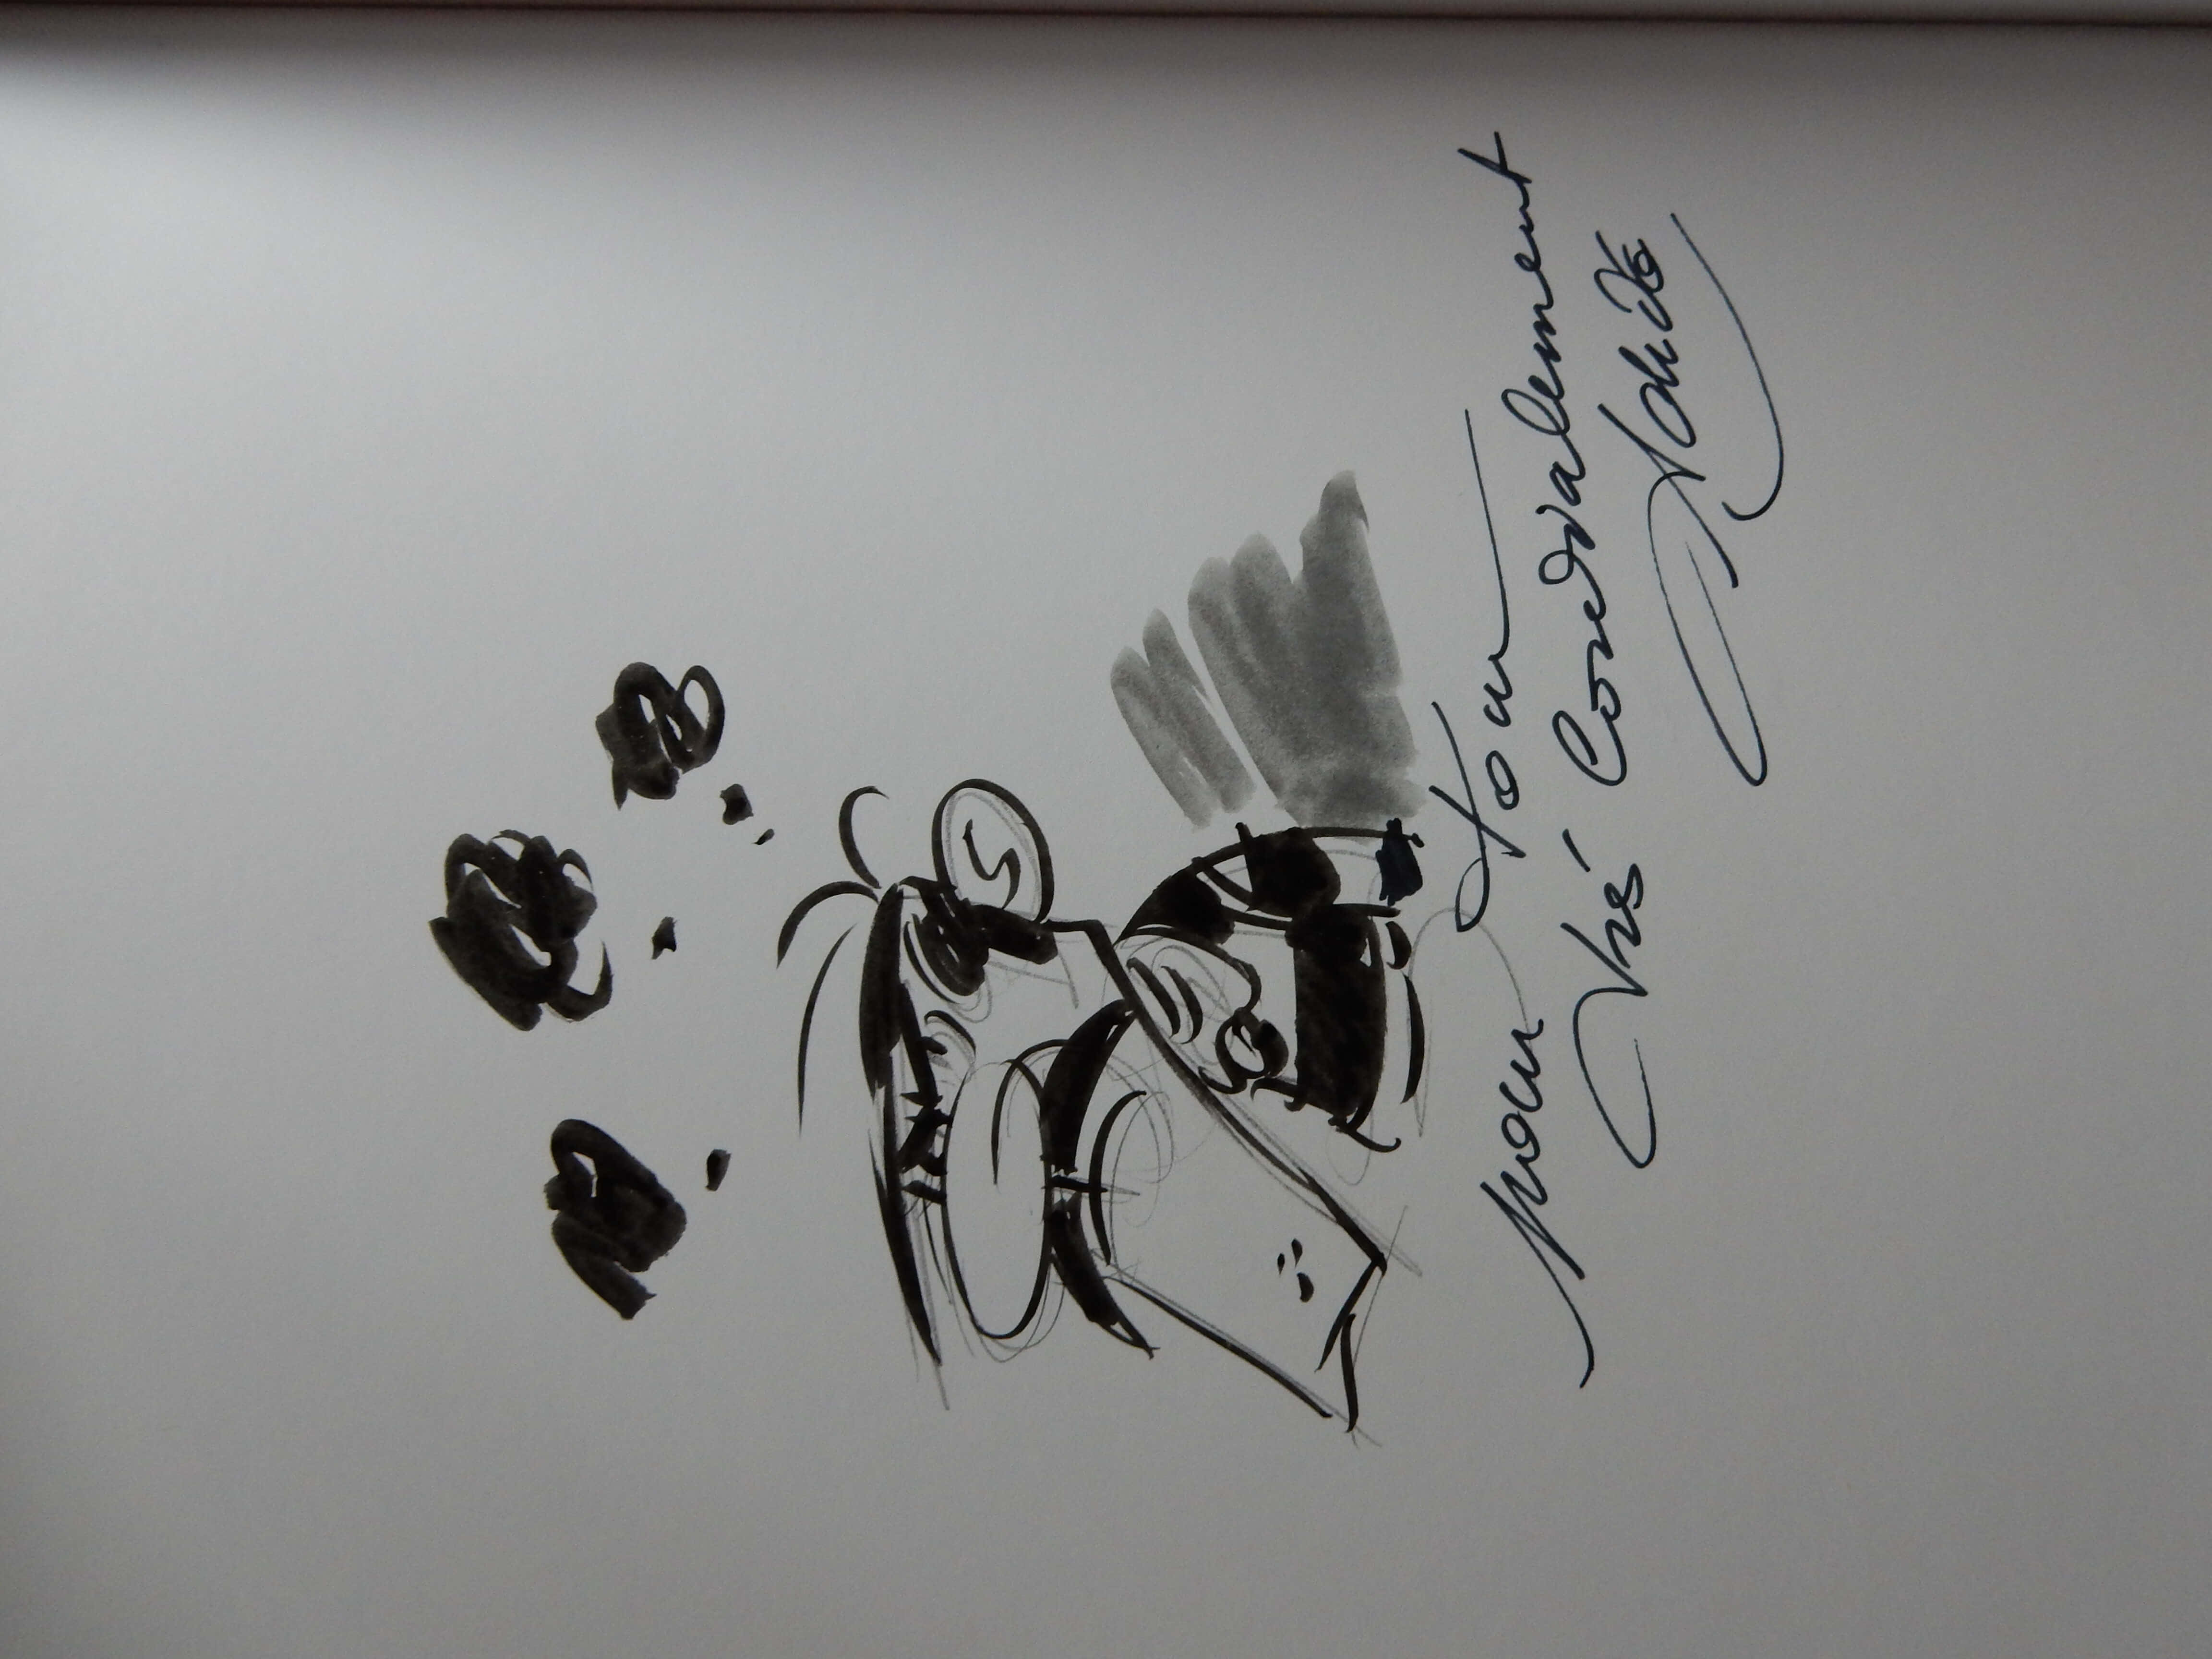 pour Tom
très Cordialement